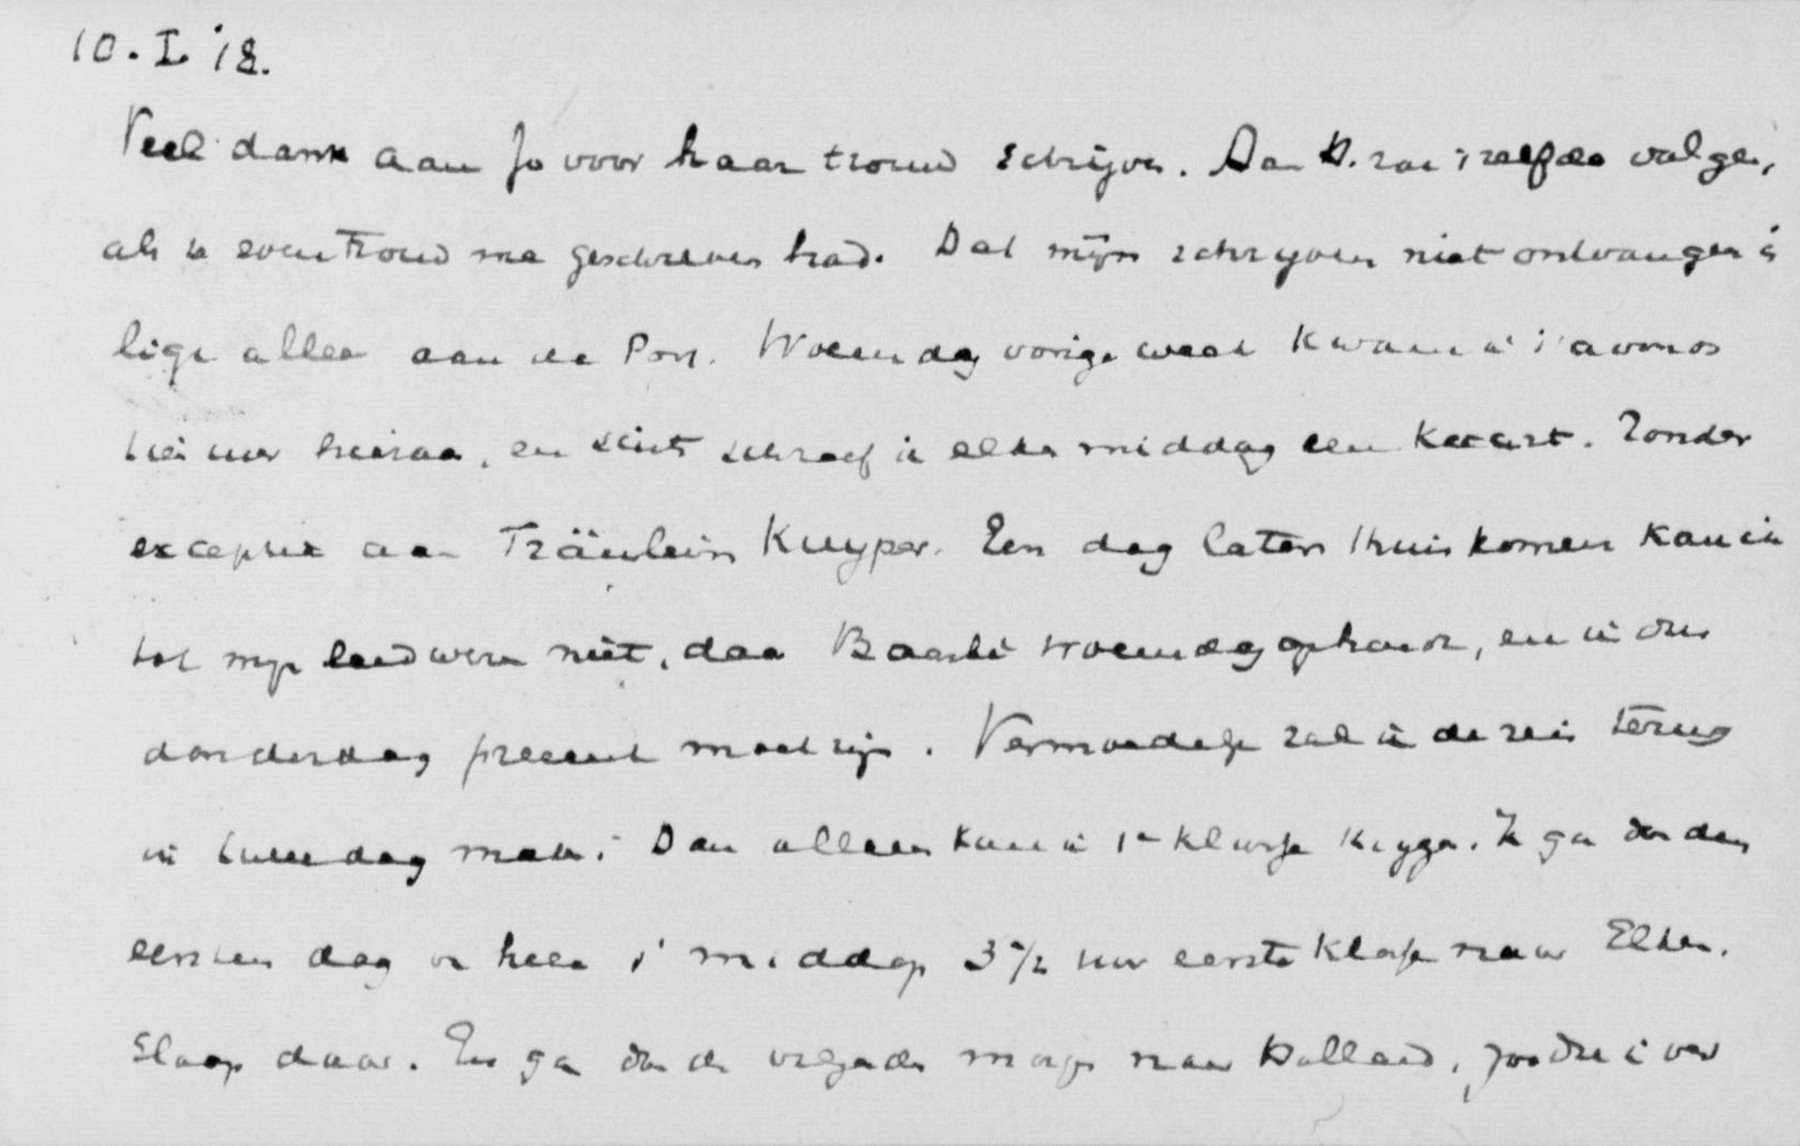 10. I '18.
Veel dank aan Jo voor haar trouw schrijven. Aan H. zou 't zelfde volgen,
als ze even trouw me geschreven had. Dat mijn schryven niet ontvangen is
ligt alleen aan de Post. Woensdag vorige week kwam ik 's avonds
hier aan, en sints schreef ik elken middag een kaart. Zonder
exceptie aan Fräulein Kuyper. Een dag later thuis komen kan ik
tot mijn leedwezen niet, daar woensdag ophoudt, en ik dus
donderdag present moet zijn. Vermoedelijk zal ik de reis terug
in twee dag maken. Dan alleen kan ik 1e klasse krygen. Ik ga dan den
eersten dag van hier 's middags 3 1/2 uur eerste klasse naar
Slaap daar. En ga dan de volgende morgen naar Holland, zoodat ik